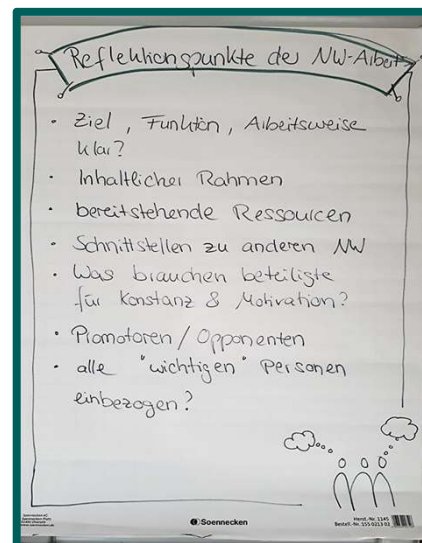 Reflektionspunkte der NW-Arbeit
• Ziel, Funktion, Arbeitsweise
klar?
• Inhaltlicher Rahmen
• bereitstehende Ressourcen
• Schnittstellen zu anderen NW
• Was brauchen beteiligte
für Konstanz & Motivation?
• Promotoren / Opponenten
• alle "wichtigen" Personen
einbezogen?
Soennecken
Herst.-Nr. 1145
Bestell.-Nr. 155-0213 02